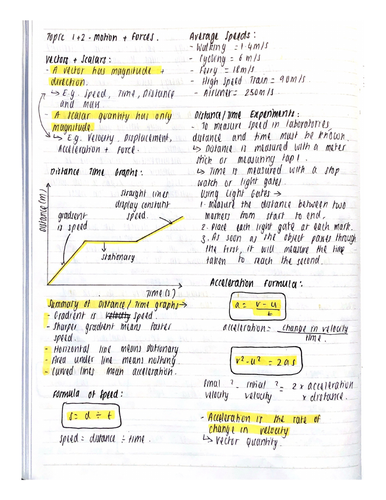 Topic 1+2 - Motion + Forces.
Vectors + Scalars:
- A vector has magnitude +
direction.
↳ E.g. Speed, Time, Distance
and Mass
- A scalar quantity has only
magnitude.
↳ E.g. Velocity, Displacement,
Acceleration + Force.
Distance Time Graphs:
Distance (m)
gradient
is speed
straight lines
display constant
speed.
stationary
Time (s)
Summary of Distance / Time graphs →
- Gradient is velocity speed.
- Sharper gradient means faster
speed.
- Horizontal line means stationary.
- Area under line means nothing.
- Curved lines mean acceleration.
Formula of Speed:
s = d ÷ t
speed = distance ÷ time.
Average Speeds:
- Walking = 1.4m/s
- Cycling = 6 m/s
- Ferry = 18m/s
- High Speed Train = 90m/s
- Airliner = 250m/s
Distance/Time Experiments:
- To measure speed in laboratories,
distance and time must be known.
↳ Distance is measured with a meter
stick or measuring tape.
↳ Time is measured with a stop
watch or light gates.
Using Light Gates →
1. Measure the distance between two
markers from start to end.
2. Place each light gate at each mark.
3. As soon as the object passes through
the first, it will measure the time
taken to reach the second.
Acceleration Formula:
a = v - u
t
acceleration = change in velocity
time.
v² - u² = 2as
final ² - initial ² = 2 x acceleration
velocity velocity x distance.
- Acceleration is the rate of
change in velocity
↳ Vector Quantity.